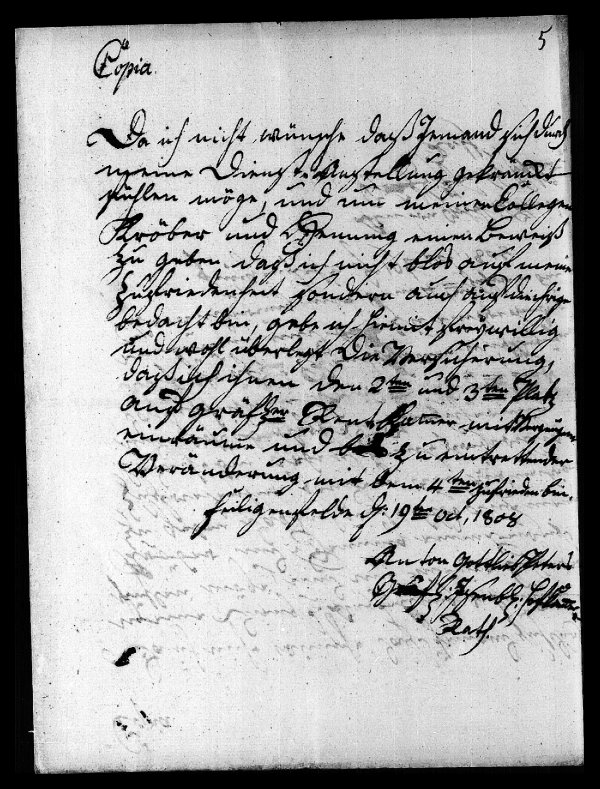 5
Copia.
Da ich nicht wünsche daß Jemand sich durch
meine Dienst-Anstellung gekränkt
fühlen möge, und um meinen Collegen
Kröber und Henning einen Beweiß
zu geben daß ich nicht blos auf meine
Zufriedenheit sondern auch auf die
bedacht bin, gebe ich hiemit freywillig
und wohl überlegt Die Versicherung,
daß ich ihnen den 2ten und 3ten Platz
auf gräfl. Rent Kammer mit Vergnügen
einräume und bis zu eintrettender
Veränderung mit dem 4ten zufrieden bin.
Heiligenfelde d. 19ten Oct. 1808
Anton Gottlieb Peters
Gräfl. Isenbl. Hofkammer
Rath.